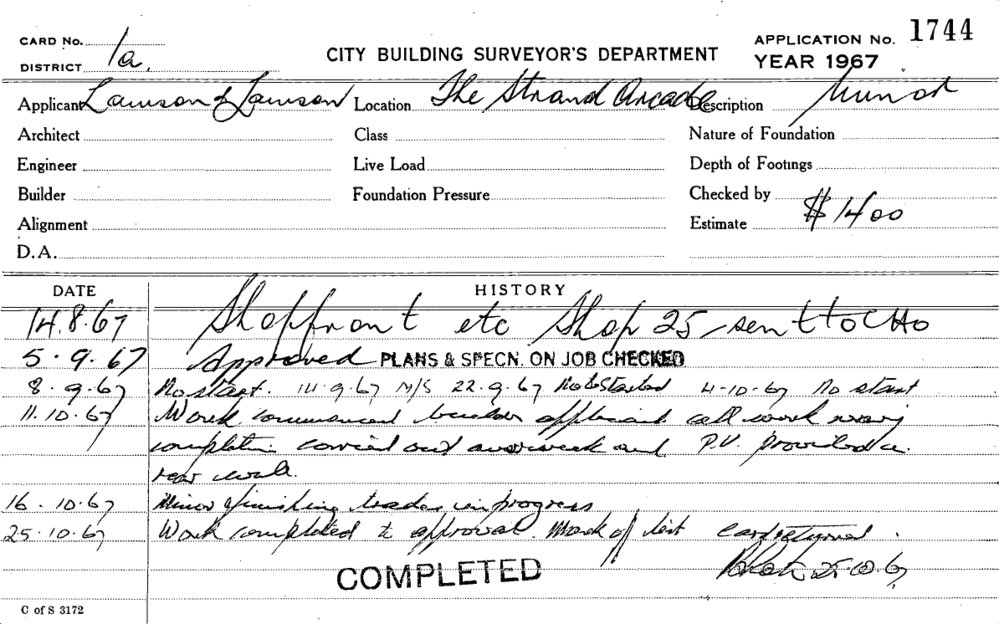 CARD No. 1a.
DISTRICT
CITY BUILDING SURVEYOR'S DEPARTMENT
APPLICATION No. 1744
YEAR 1967
Applicant Lawson & Lawson Location The Strand Arcade Description Minor
Architect Class Nature of Foundation
Engineer Live Load Depth of Footings
Builder Foundation Pressure Checked by
Alignment Estimate $1400
D.A.
DATE HISTORY
14.8.67 Shopfront etc Shop 25 sent to CHO
5.9.67 Approved PLANS & SPECN. ON JOB CHECKED
8.9.67 No start. 14.9.67 N/S 22.9.67 Not Started 4-10-67 No start
11.10.67 Work commenced builder applicant all work
completion carried out and P.V. Provided
rear wall.
16.10.67 Minor finishing trades in progress
25.10.67 Work completed to approval. off list
25.10.67
COMPLETED
C of S 3172